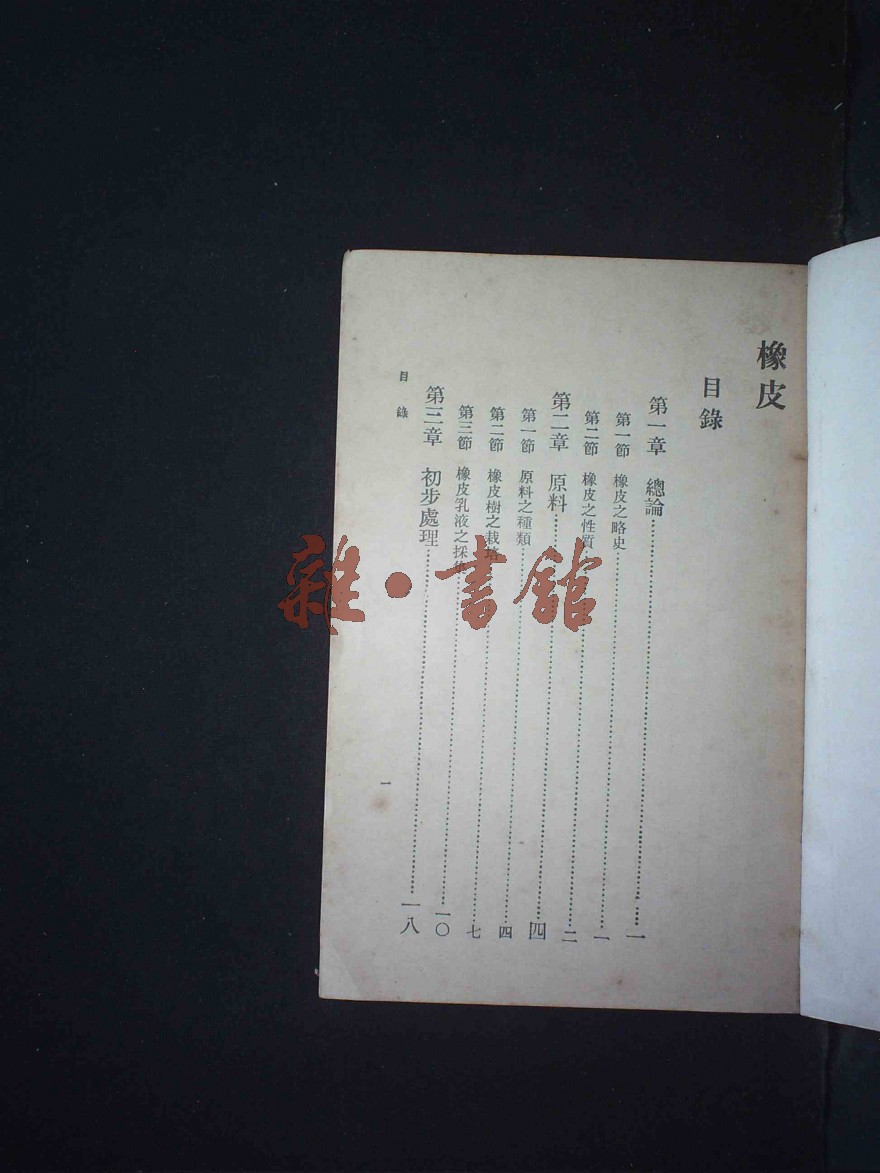 橡皮
目錄
第一章 總論……一
第一節 橡皮之略史……一
第二節 橡皮之性質……二
第二章 原料……四
第一節 原料之種類……四
第二節 橡皮樹之栽培……七
第三節 橡皮乳液之採集……一〇
第三章 初步處理……一八
目錄
一
雜·書館